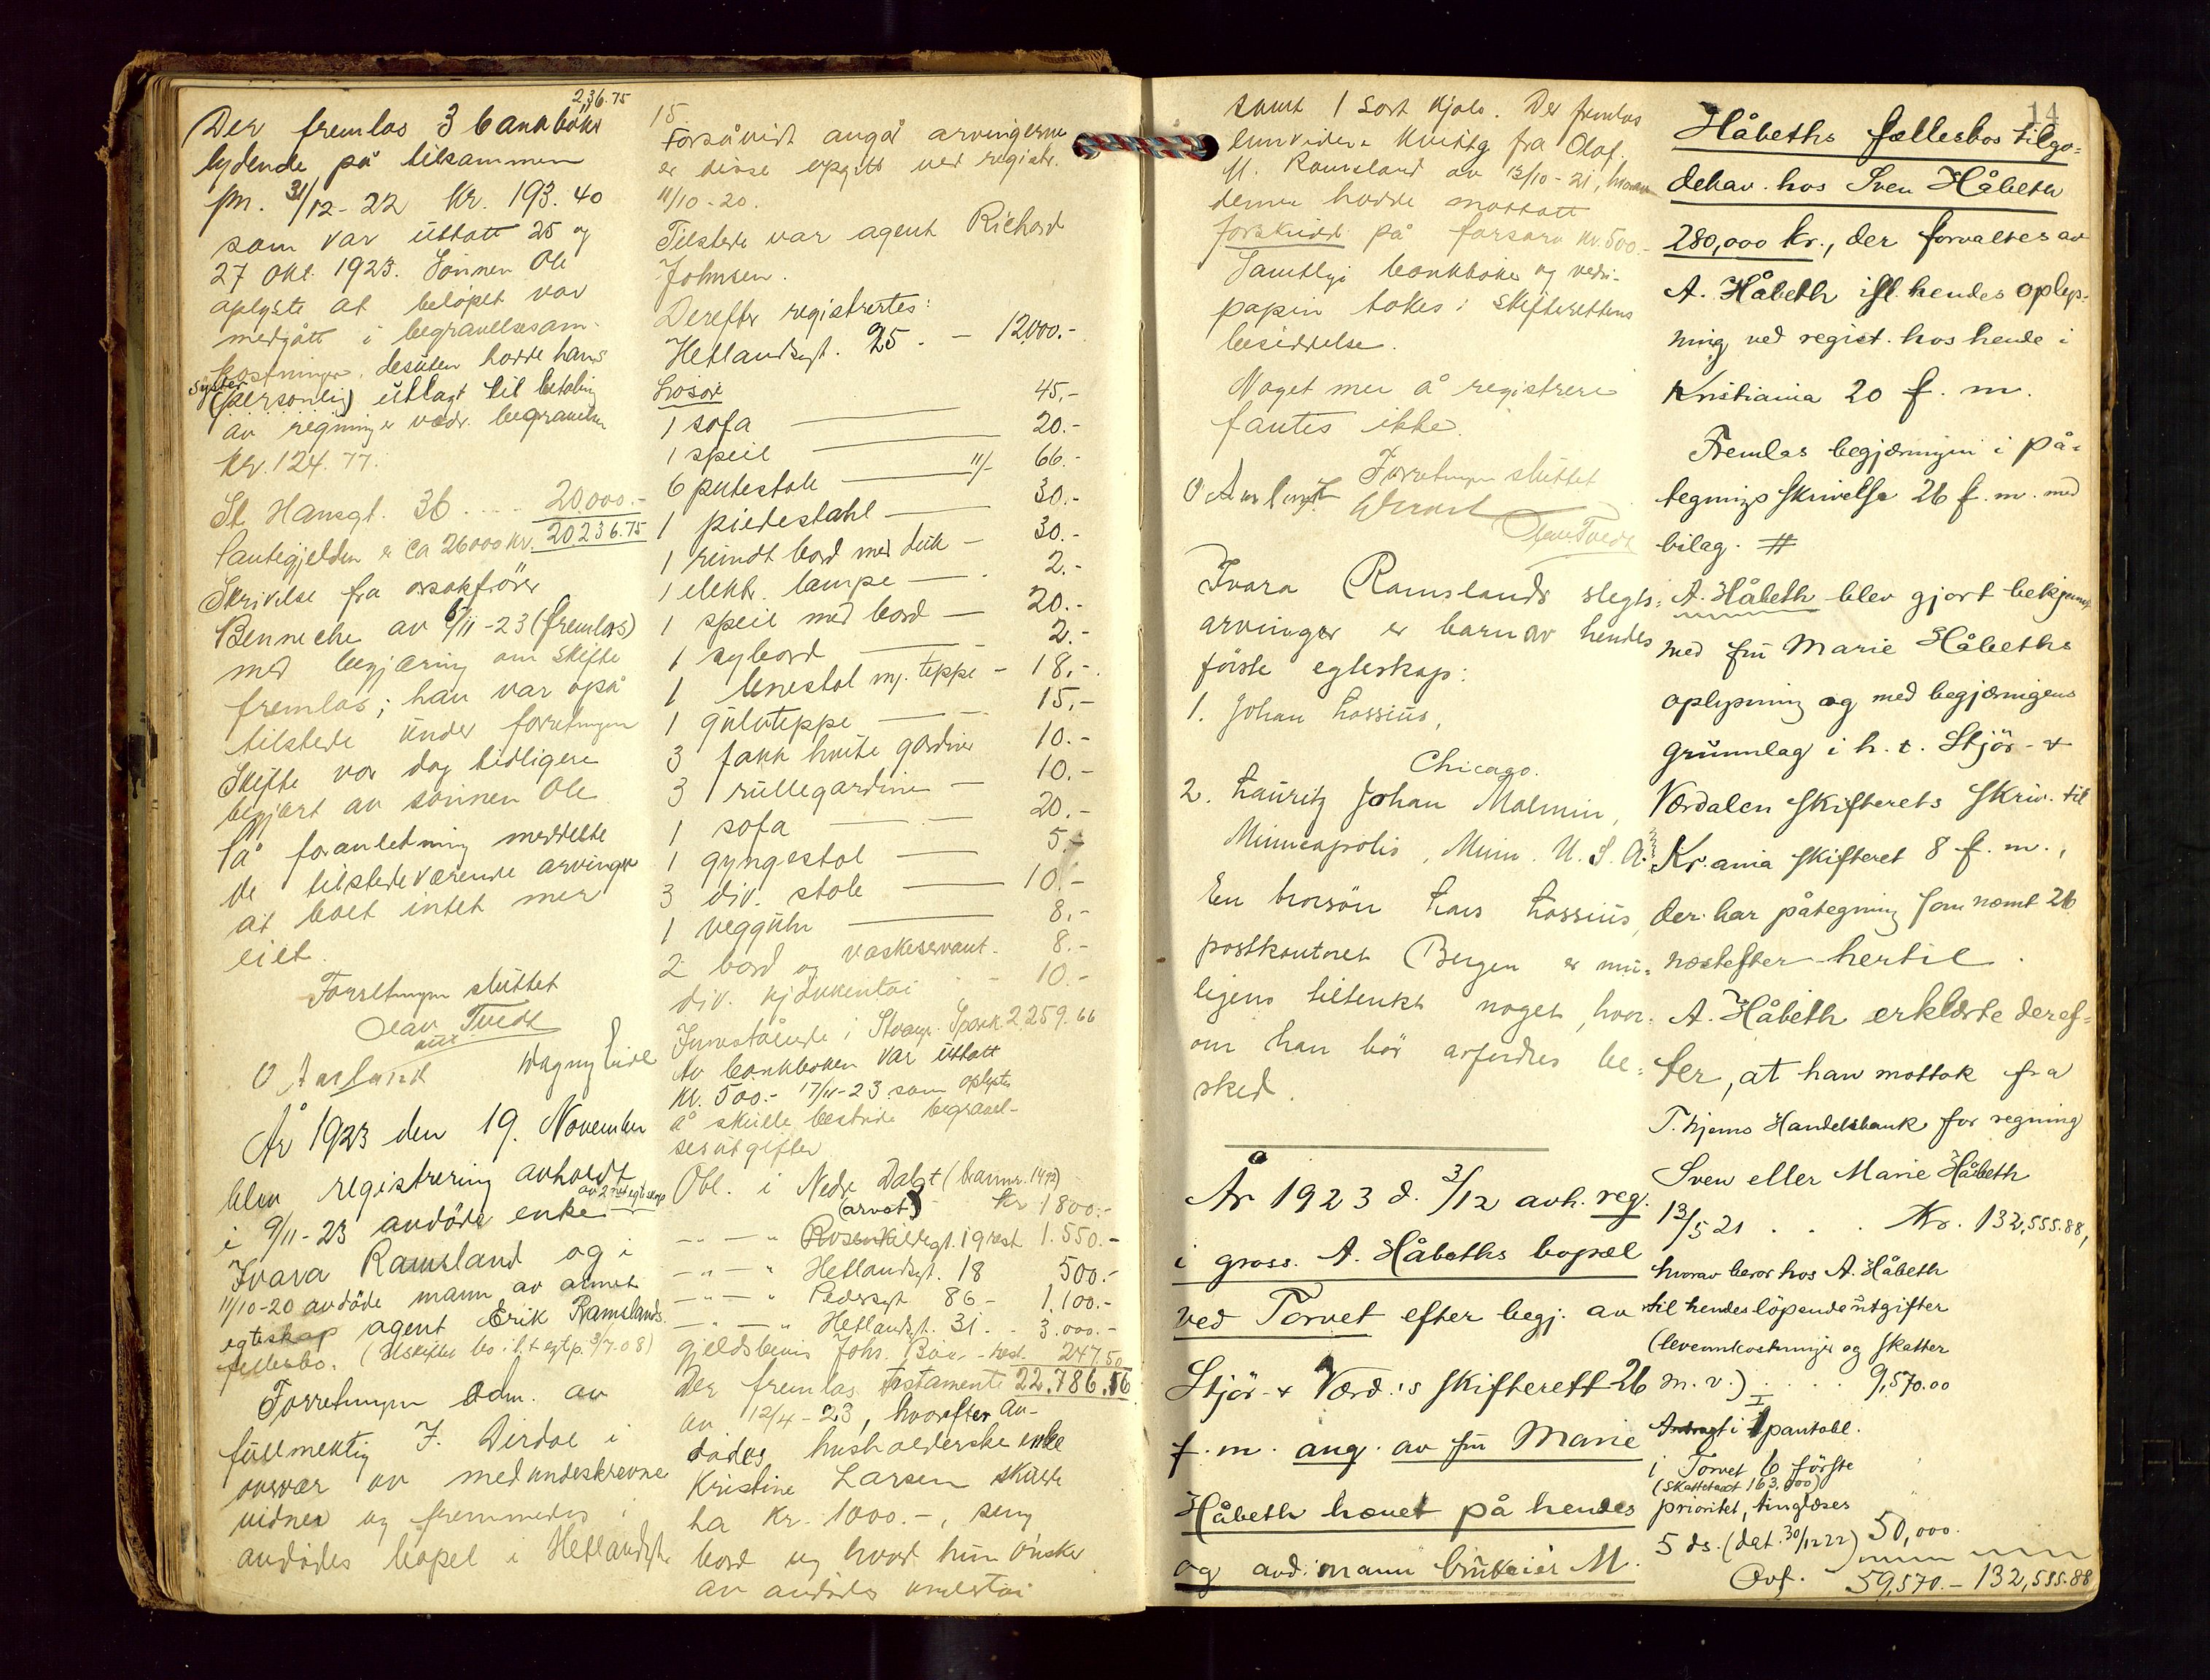 236.75
Der fremlas 3 bankbøker
lydende på tilsammen
pr. 31/12-22 Kr. 193.40
som var üttatt 25 og
27 okt. 1923. Sønnen Ole
oplyste at beløpet var
medgått i begravelsesom-
kostninger, desuten hadde hans
syster
(personlig) ütlagt til betaling
av regninger vedr. begravelsen
Kr. 124.77.
St. Hansgt. 36 .... 20.000.-
20.236.75
Pantegjelden er ca 26000 kr.
Skrivelse fra orsakfører
Benneche av 6/11-23 (fremlas)
med begjæring om skifte
fremlas; han var også
tilstede ünder forretningen
Skifte var dag tidligere
begjært av sønnen Ole
På foranledning meddelte
de tilstedeværende arvinger
at boet intet mer
eiet.
Forretningen slüttet
Olav Tvedt
O Aarland
År 1923 den 19. November
blev registrering avholdt
av 2net egteskap
i 9/11-23 avdøde enke
Ivara Ramsland og i
11/10-20 avdøde mann av annet
egteskap agent Erik Ramslands
fellesbo. (Uskiftet bo i flg. 3/7.08)
Forretningen adm. av
füllmektig J. Dirdal i
overvær av medunderskrevne
vidner og fremmedes i
avdødes bopel i Hetlandsgt.
15.
Forsåvidt angår arvingerne
er disse opgitt ved registr.
11/10-20.
Tilstede var agent Richard
Johnsen.
Derefter registrertes:
Hetlandsgt. 25. - 12000.-
Løsøre
1 sofa 45.-
1 speil 20.-
6 putestole 11/- 66.-
1 piedestahl 30.-
1 rundt bord med duk - 30.-
1 elektr. lampe 2.-
1 speil med bord - 20.-
1 sybord 2.-
1 lenestol m. teppe - 18.-
1 gülvteppe 15.-
3 fakk hvite gardiner 10.-
3 rüllegardiner - 10.-
1 sofa 20.-
1 gyngestol 5.-
3 div. stole 10.-
1 veggühr 8.-
2 bord og vaskeservant. 8.-
div. kjøkkentøi - 10.-
Innestående i Stvgr. Spark. 2,259.66
Av bankboken var üttatt
kr. 500.- 17/11-23 som oplystes
å skülle bestride begravel-
sesütgifter
Obl. i Nedre Dalgt (brannr. 1492)
(arvet) Kr 1800.-
-"-"- Rosenkildegt. 19 rest 1.550.-
-"-"- Hetlandsgt. 18 500.-
-"-"- Pedersgt 86 - 1.100.-
-"-"- Hetlandsgt. 31 . . 3.000.-
gjeldsbevis Johs. Bøe - rest 247.50
Der fremlas testamente 22.786.16
av 12/4-23, hvorefter av-
dødes husholderske enke
Kristine Larsen skulde
ha Kr. 1000.-, seng
bord og hvad hun ønsker
av avdødes undertøi
samt 1 sort kjole. Der fremlas
enn videre kvittg fra Olaf
M. Ramsland av 13/10-21, hvorav
denne hadde mottatt
forskudd på farsarv kr. 500.-
Samtlige bankbøker og verdi-
papir tokes i skifterettens
besiddelse.
Noget mer å registrere
fantes ikke.
Forretningen slüttet
O Aarland
Olav Tvedt
Ivara Ramslands slegts-
arvinger er barn av hendes
første egteskap:
1. Johan Lossiüs,
Chicago.
2. Laüritz Johan Malmin,
Minneapolis, Minn. U.S.A.
En brorsøn Lars Lossiüs,
postkontoret Bergen er mu-
ligens tiltenkt noget, hvor-
om han bør avfordres be-
sked.
År 1923 d. 3/12 avh. reg.
i gross. A. Håbeths bopæl
ved Torvet efter begj. av
Stjør- & Værd.:s skifterett 26
f. m. ang. av frü Marie
Håbeth hævet på hendes
og avd. mann brükeier M.
14
Håbeths fællesbos tilgo-
dehav. hos Sven Håbeth
280,000 kr., der forvaltes av
A. Håbeth ifl. hendes oplys-
ning ved regist. hos hende i
Kristiania 20 f. m.
Fremlas begjæringen i på-
tegnings skrivelse 26 f. m. med
bilag. #
A. Håbeth blev gjort bekjent
med frü Marie Håbeths
oplysning og med begjæringens
grunnlag i h. t. Stjør- &
Værdalen skifterets skriv. til
Kr.ania skifteret 8 f. m.,
der har påtegning som nævnt 26
næstefter hertil.
A. Håbeth erklærte deref-
ter, at han mottok fra
T.hjems Handelsbank for regning
Sven eller Marie Håbeth
13/5 21 . . . Kr. 132,555.88,
hvorav beror hos A. Håbeth
til hendes løpende ütgifter
(leveomkostninger og skatter
m. v.) . . . . 9,570.00
i 1 pantobl.
i Torvet 6 første
(skattetaxt 163.000)
prioritet, tinglæses
5 ds. (dat. 30/12 22) 50,000.
Ovf. 59,570.- 132,555.88